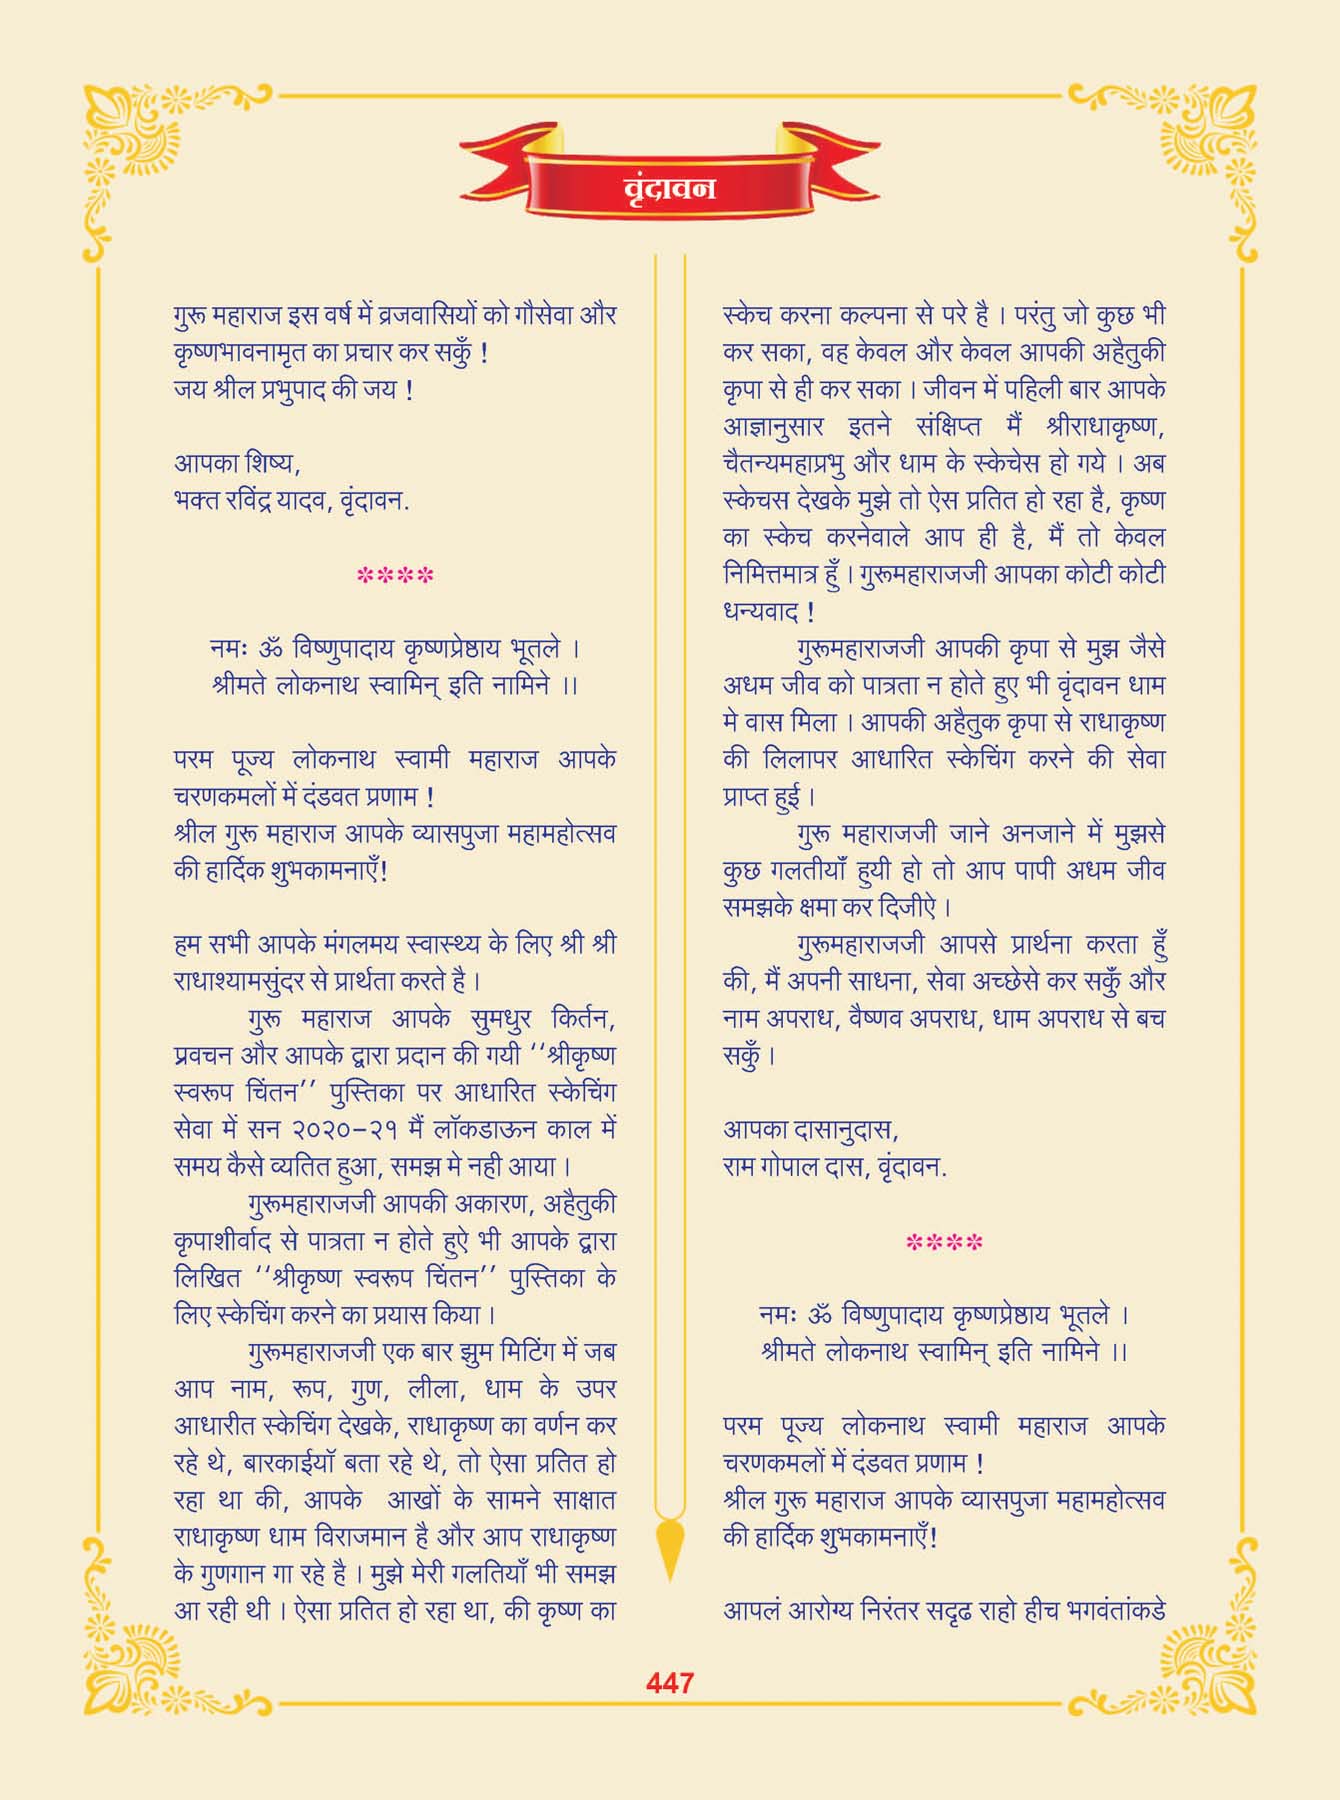 वृंदावन
गुरू महाराज इस वर्ष में व्रजवासियों को गौसेवा और
कृष्णभावनामृत का प्रचार कर सकुँ !
जय श्रील प्रभुपाद की जय !
आपका शिष्य,
भक्त रविंद्र यादव, वृंदावन.
****
नमः ॐ विष्णुपादाय कृष्णप्रेष्ठाय भूतले ।
श्रीमते लोकनाथ स्वामिन् इति नामिने ।।
परम पूज्य लोकनाथ स्वामी महाराज आपके
चरणकमलों में दंडवत प्रणाम !
श्रील गुरू महाराज आपके व्यासपुजा महामहोत्सव
की हार्दिक शुभकामनाएँ!
हम सभी आपके मंगलमय स्वास्थ्य के लिए श्री श्री
राधाश्यामसुंदर से प्रार्थता करते है ।
गुरू महाराज आपके सुमधुर किर्तन,
प्रवचन और आपके द्वारा प्रदान की गयी ‘‘श्रीकृष्ण
स्वरूप चिंतन’’ पुस्तिका पर आधारित स्केचिंग
सेवा में सन २०२०-२१ मैं लॉकडाऊन काल में
समय कैसे व्यतित हुआ, समझ मे नही आया ।
गुरूमहाराजजी आपकी अकारण, अहैतुकी
कृपाशीर्वाद से पात्रता न होते हुऐ भी आपके द्वारा
लिखित ‘‘श्रीकृष्ण स्वरूप चिंतन’’ पुस्तिका के
लिए स्केचिंग करने का प्रयास किया ।
गुरूमहाराजजी एक बार झुम मिटिंग में जब
आप नाम, रूप, गुण, लीला, धाम के उपर
आधारीत स्केचिंग देखके, राधाकृष्ण का वर्णन कर
रहे थे, बारकाईयॉ बता रहे थे, तो ऐसा प्रतित हो
रहा था की, आपके आखों के सामने साक्षात
राधाकृष्ण धाम विराजमान है और आप राधाकृष्ण
के गुणगान गा रहे है । मुझे मेरी गलतियाँ भी समझ
आ रही थी । ऐसा प्रतित हो रहा था, की कृष्ण का
स्केच करना कल्पना से परे है । परंतु जो कुछ भी
कर सका, वह केवल और केवल आपकी अहैतुकी
कृपा से ही कर सका । जीवन में पहिली बार आपके
आज्ञानुसार इतने संक्षिप्त मैं श्रीराधाकृष्ण,
चैतन्यमहाप्रभु और धाम के स्केचेस हो गये । अब
स्केचस देखके मुझे तो ऐस प्रतित हो रहा है, कृष्ण
का स्केच करनेवाले आप ही है, मैं तो केवल
निमित्तमात्र हुँ । गुरूमहाराजजी आपका कोटी कोटी
धन्यवाद !
गुरूमहाराजजी आपकी कृपा से मुझ जैसे
अधम जीव को पात्रता न होते हुए भी वृंदावन धाम
मे वास मिला । आपकी अहैतुक कृपा से राधाकृष्ण
की लिलापर आधारित स्केचिंग करने की सेवा
प्राप्त हुई ।
गुरू महाराजजी जाने अनजाने में मुझसे
कुछ गलतीयाँ हुयी हो तो आप पापी अधम जीव
समझके क्षमा कर दिजीऐ ।
गुरूमहाराजजी आपसे प्रार्थना करता हुँ
की, मैं अपनी साधना, सेवा अच्छेसे कर सकुँ और
नाम अपराध, वैष्णव अपराध, धाम अपराध से बच
सकुँ ।
आपका दासानुदास,
राम गोपाल दास, वृंदावन.
****
नमः ॐ विष्णुपादाय कृष्णप्रेष्ठाय भूतले ।
श्रीमते लोकनाथ स्वामिन् इति नामिने ।।
परम पूज्य लोकनाथ स्वामी महाराज आपके
चरणकमलों में दंडवत प्रणाम !
श्रील गुरू महाराज आपके व्यासपुजा महामहोत्सव
की हार्दिक शुभकामनाएँ!
आपलं आरोग्य निरंतर सदृढ राहो हीच भगवंतांकडे
447